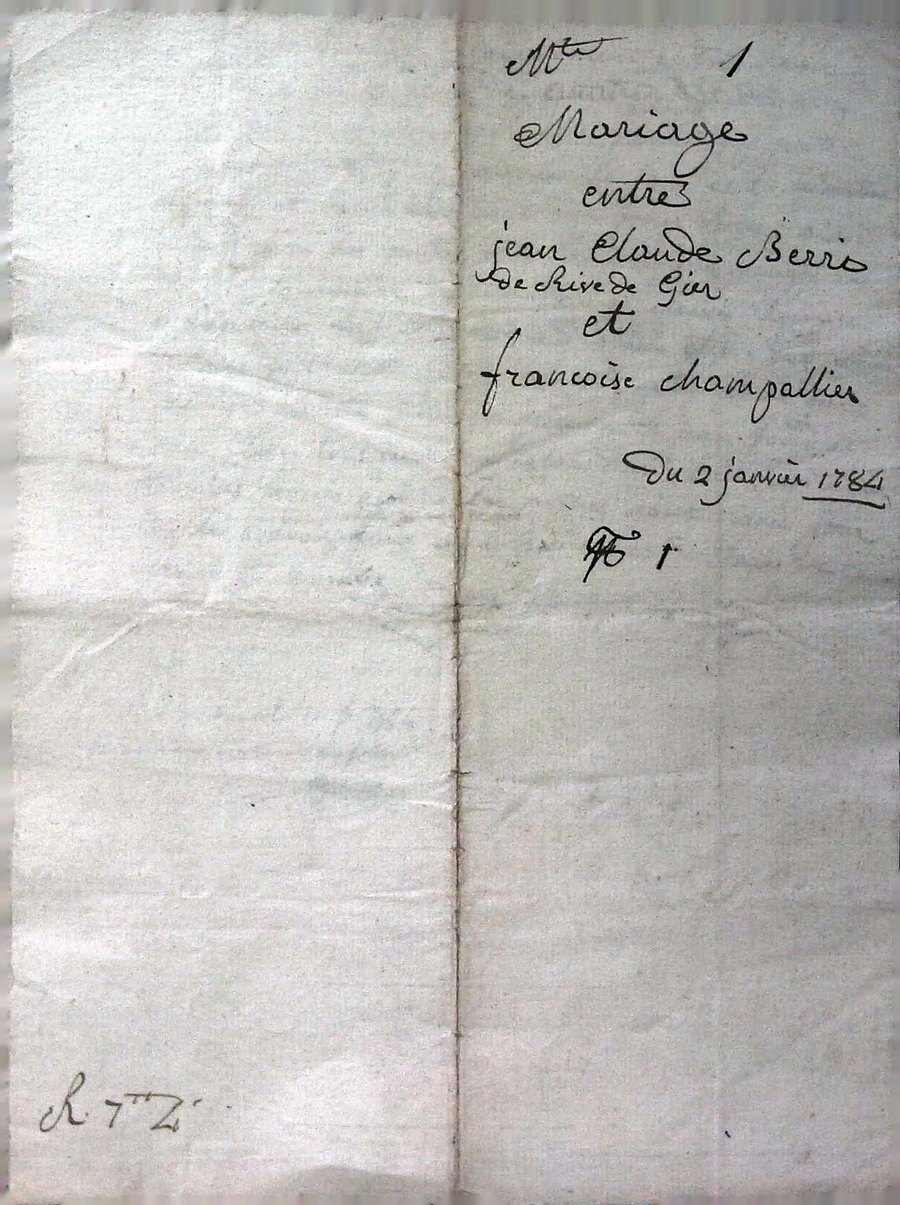 Mte 1
Mariage
entre
jean Claude Berrie
de Rive de Gier
et
francoise champallier
du 2 janvier 1784
No 1
R. 7tt